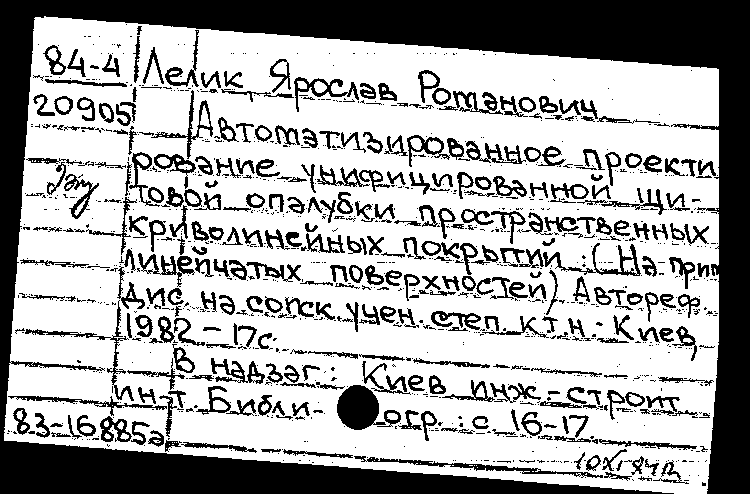 84-4 Лелик, Ярослав Романович
20905
Автоматизированное проекти
рование унифицированной щи-
товой опалубки пространственных
криволинейных покрытий : (На прим
линейчатых поверхностей) Автореф.
дис. на соиск. учен. степ. к.т.н. - Киев,
1982 - 17с.
В надзаг : Киев инж.-строит
ин-т. Библи-огр. : с. 16-17.
83-16885а